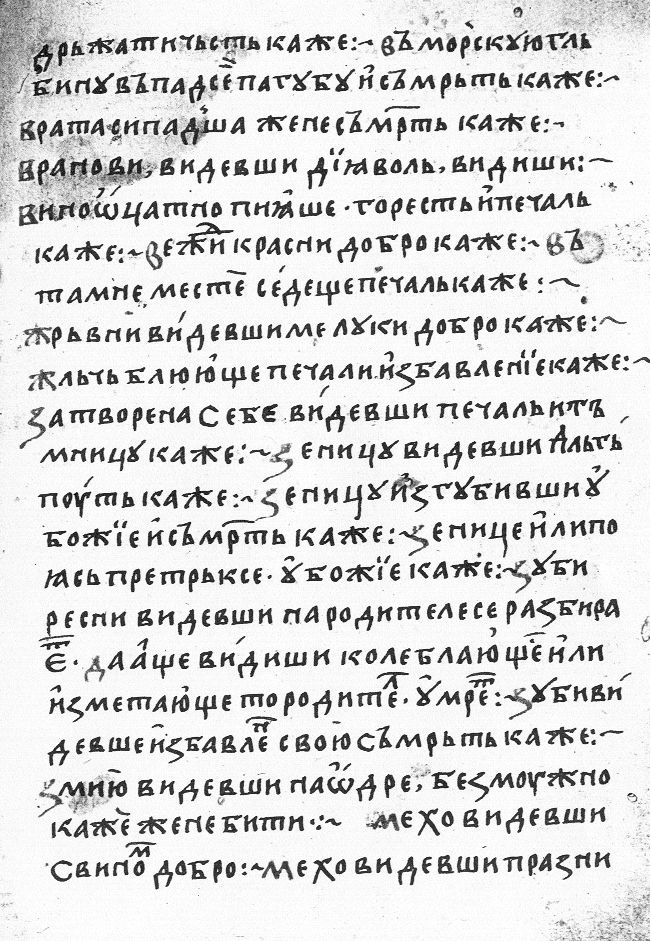 дрьжати чьсть каже:~ Въ морскую гль
бину въпадсе пагубу и съмрьть каже:~
Врата сипадша жене съмрть каже:~
Вранови, видевши дїꙗволь, видиши:~
Вино ѿцатно пиꙗше · горесть и печаль
каже:~ Вежди красни добро каже:~ Въ
тамне месте седеще печаль каже:~
Жрьвни видевши мелуки добро каже:~
Жльчь блююще печали избавленїе каже:~
Затворена себе видевши печаль и тъ
мницу каже:~ Зеницу видевши пльть
поуть каже:~ Зеницу изгубивши у
божїе и съмрть каже:~ Зенице или по
ꙗсь претрьксе · убожїе каже:~ Зуби
ресни видевши на родителе се разбира
ет · да аще видиши колеблающе или
изметающе то родител · умрет:~ Зуби ви
девше избавлен свою съмрьть каже:~
Змию видевши на ѡдре, безмоужно
каже жене бити:~ Мехо видевши
с вином добро:~ Мехо видевши празни